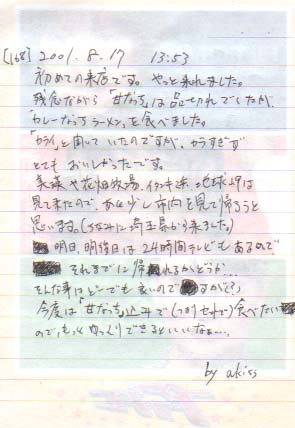 [168] 2001. 8. 17 13:53
初めての来店です。やっと来れました。
残念ながら「甘なっち」は品切れでしたが、
「カレーなっちラーメン」を食べました。
「カライ」と聞いていたのですが、カラすぎず
とてもおいしかったです。
美葉や花畑牧場、イタンキ浜、地球岬は
見てきたので、あと少し市内を見て帰ろうと
思います。(ちなみに埼玉県から来ました。)
明日、明後日は24時間テレビもあるので
それまでに帰れるかどうか…
そんな事はどーでも良いのですがぞ?)
今度は「甘なっち」込みで(つまりセットで)食べたい
ので、もっとゆっくりできるといいなぁ…。
by akiss